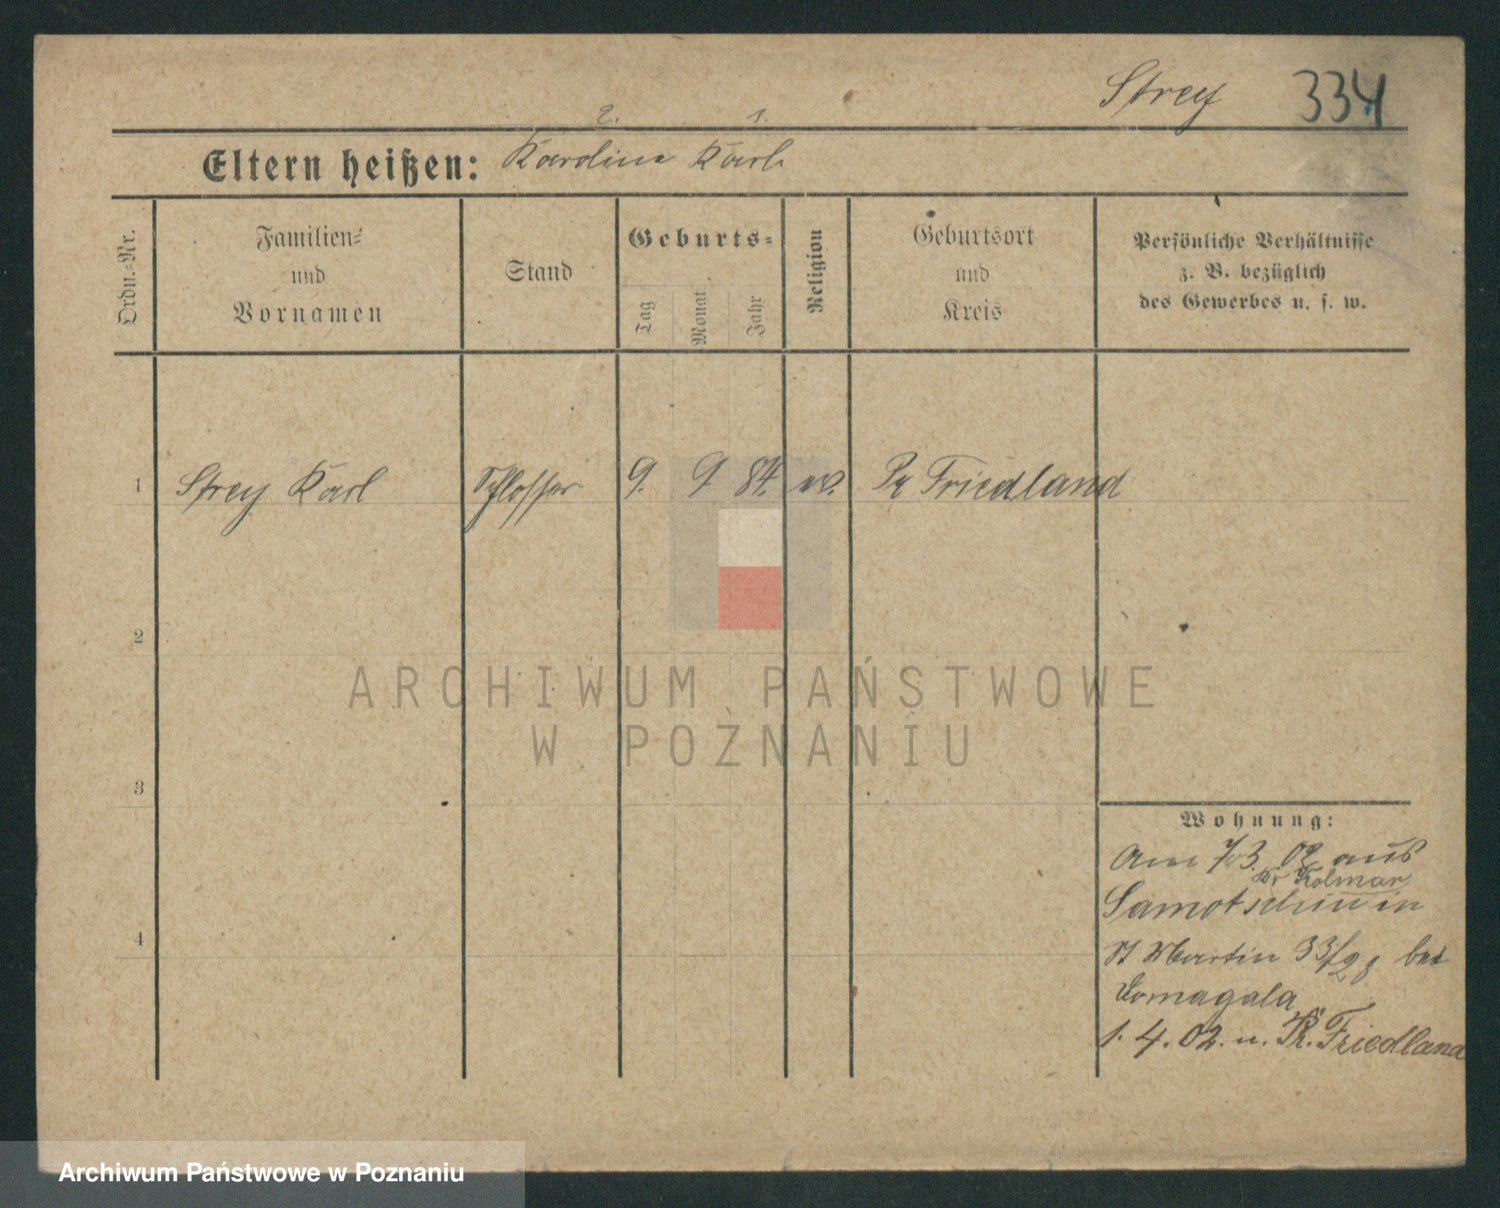 Strey 334
2. 1.
Eltern heißen: Karoline Karl
Ordn.-Nr.
Familien-
und
Vornamen
Stand
Geburts-
Tag
Monat
Jahr
Religion
Geburtsort
und
Kreis
Persönliche Verhältnisse
z. B. bezüglich
des Gewerbes u. s. w.
1 Strey Karl Schlosser 9. 9. 84. ev. Pr Friedland
2
3
4
Wohnung:
Am 7/3. 02 aus
Kr Kolmar
Samotschin in
St Martin 33/ bei
Domagala
1. 4. 02. n. Pr. Friedland
ARCHIWUM PAŃSTWOWE
W POZNANIU
Archiwum Państwowe w Poznaniu